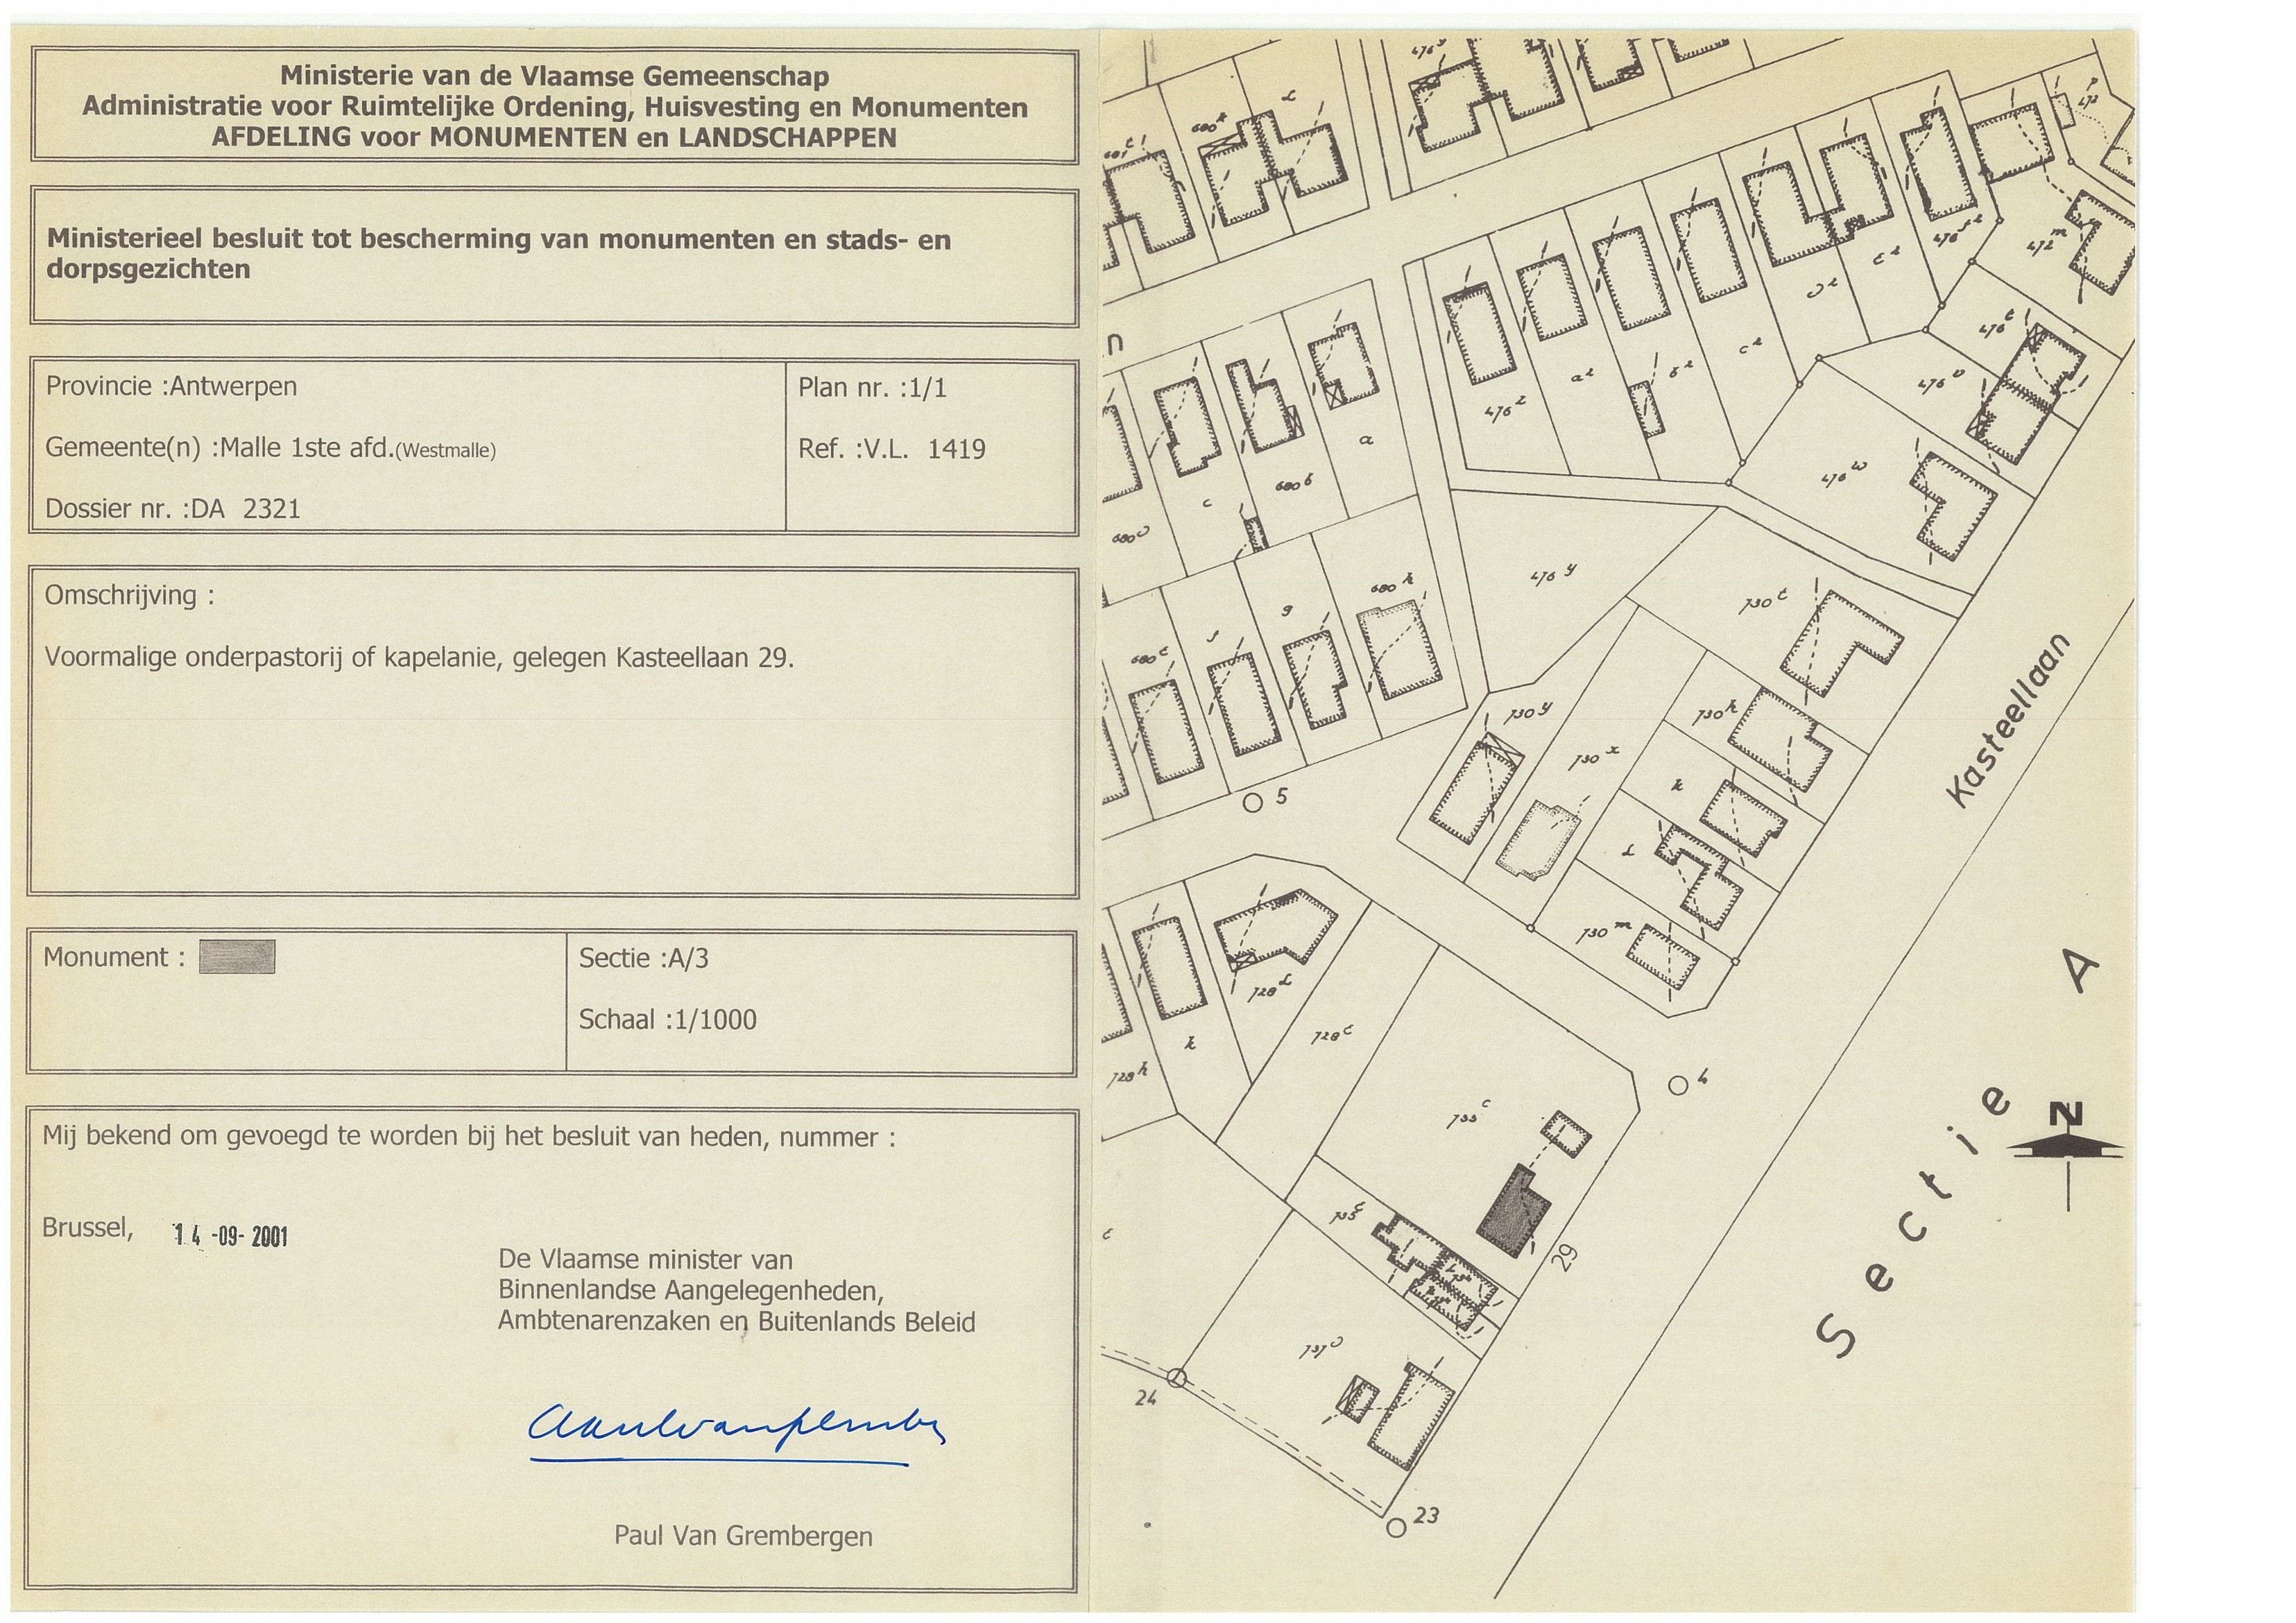 Ministerie van de Vlaamse Gemeenschap
Administratie voor Ruimtelijke Ordening, Huisvesting en Monumenten
AFDELING voor MONUMENTEN en LANDSCHAPPEN
Ministerieel besluit tot bescherming van monumenten en stads- en
dorpsgezichten
Provincie :Antwerpen
Gemeente(n) :Malle 1ste afd.(Westmalle)
Dossier nr. :DA 2321
Plan nr. :1/1
Ref. :V.L. 1419
Omschrijving :
Voormalige onderpastorij of kapelanie, gelegen Kasteellaan 29.
Monument :
Sectie :A/3
Schaal :1/1000
Mij bekend om gevoegd te worden bij het besluit van heden, nummer :
Brussel, 14 -09- 2001
De Vlaamse minister van
Binnenlandse Aangelegenheden,
Ambtenarenzaken en Buitenlands Beleid
Paul Van Grembergen
n
a
c
680 b
476 z
476 w
476 y
680 h
g
730 t
730 y
730 h
730 x
k
730 m
5
Kasteellaan
728 c
k
728 h
4
Sectie A
N
29
c
24
23